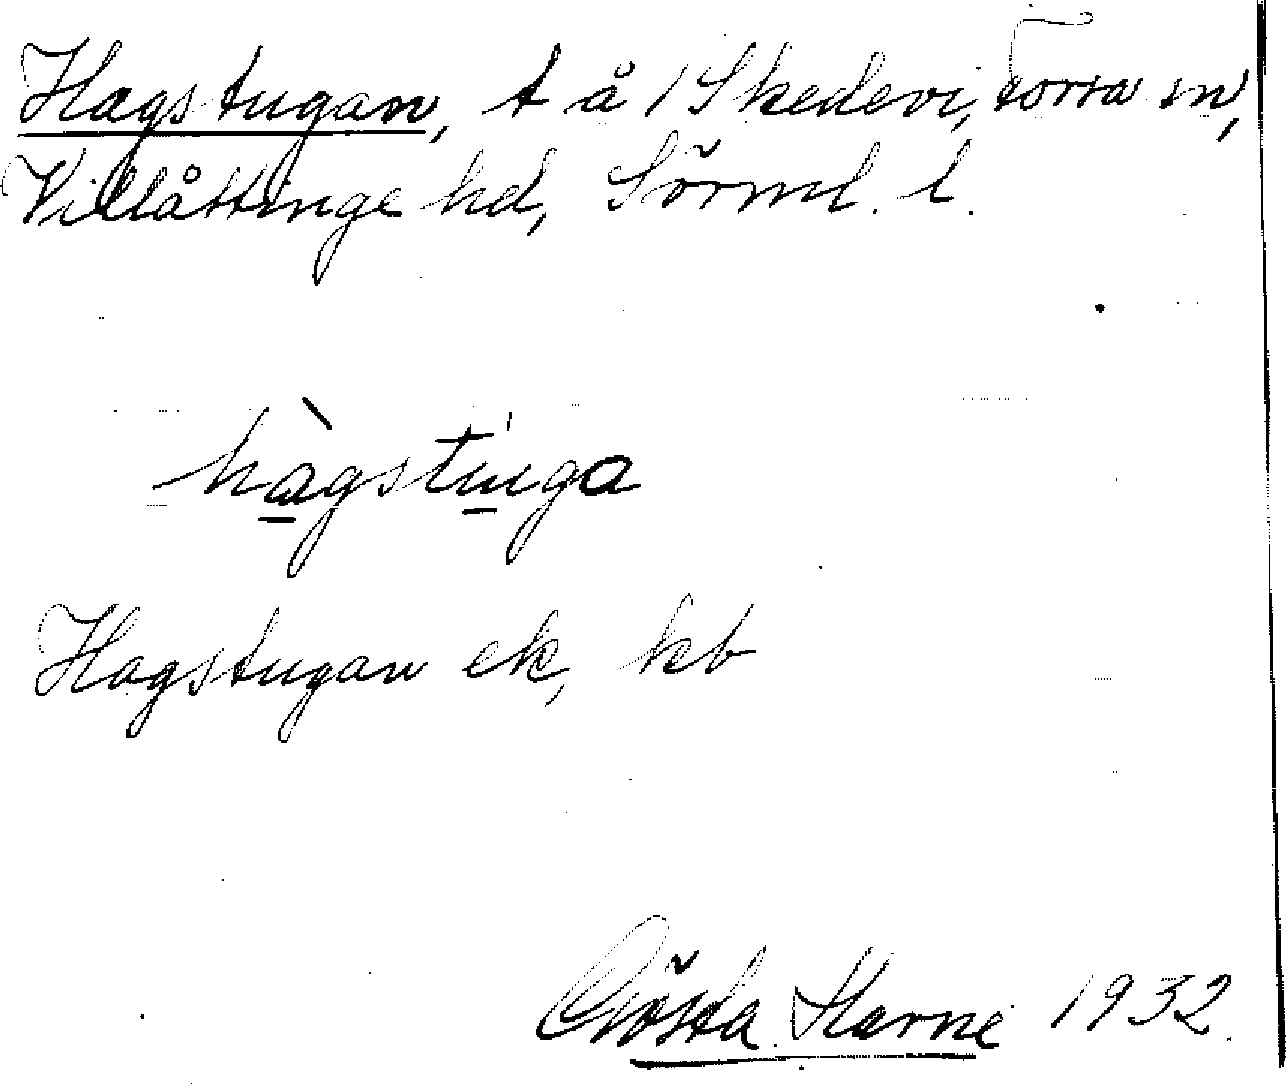 Hagstugan, t å 1 Skedevi, Forsa sn,
Villåttinge hd, Sörml. l.
hàgstuga
Hagstugan ek, kb
Gösta Harne 1932.